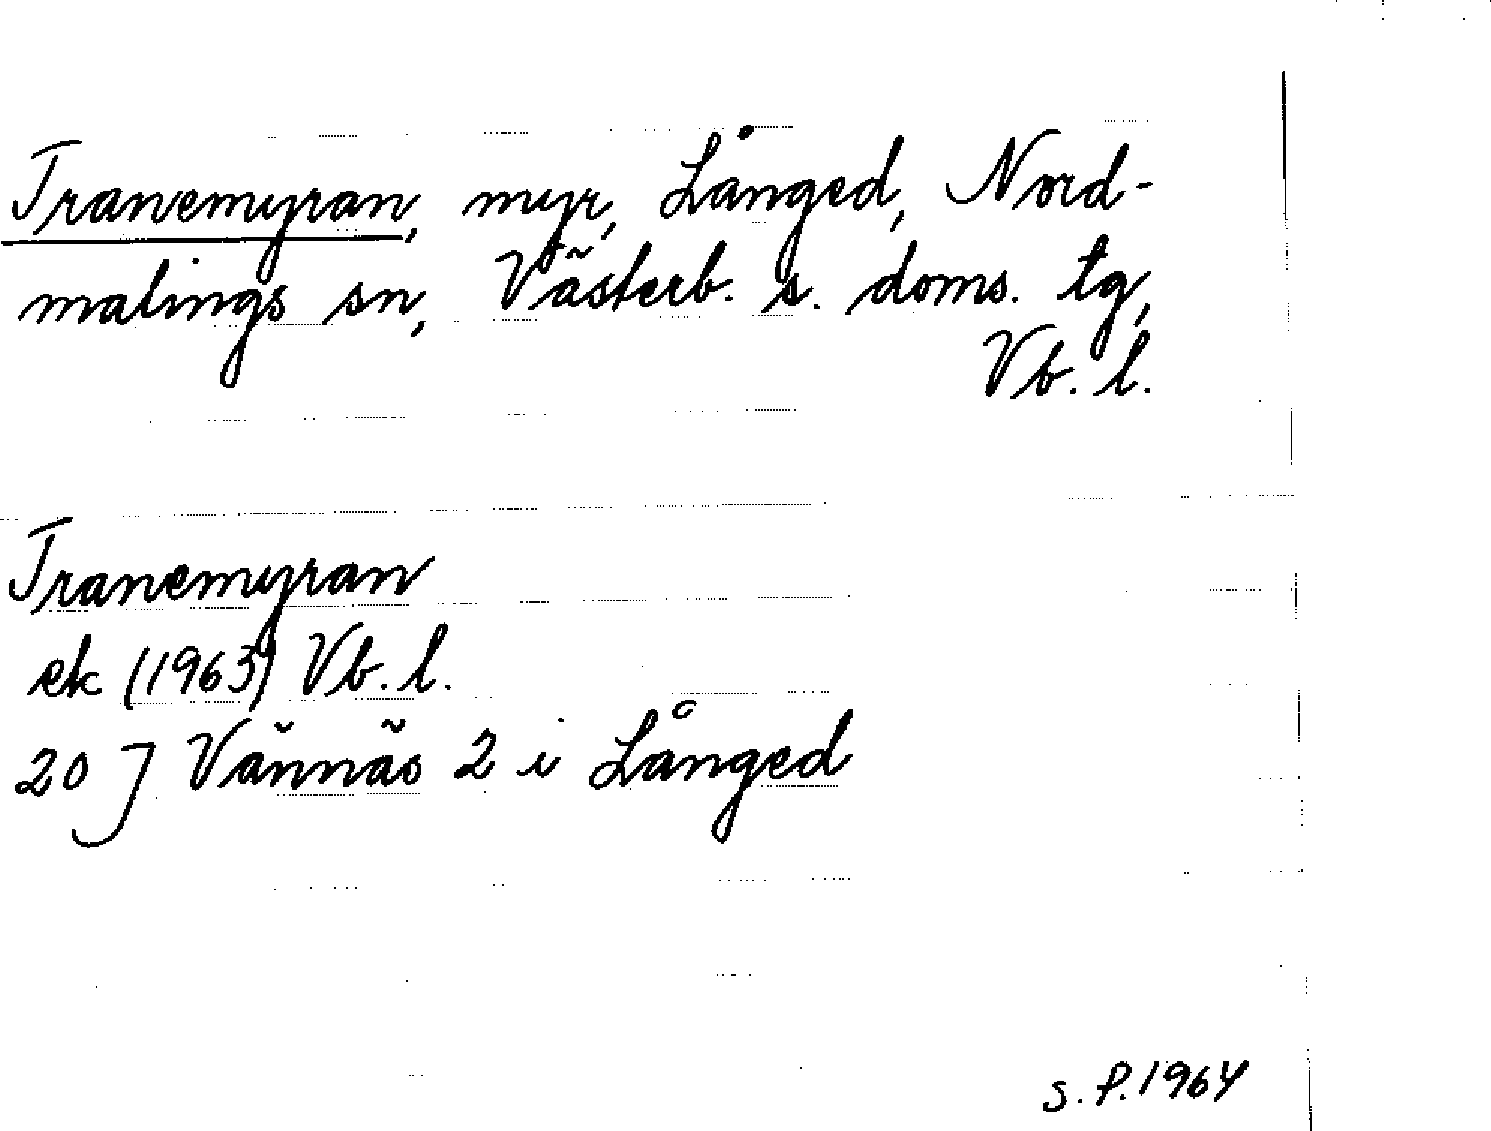 Tranemyran, myr, Långed, Nord-
malings sn, Västerb. s. doms. tg,
Vb. l.
Tranemyran
ek (1963) Vb. l.
20 J Vännäs 2 i Långed
S. P. 1964